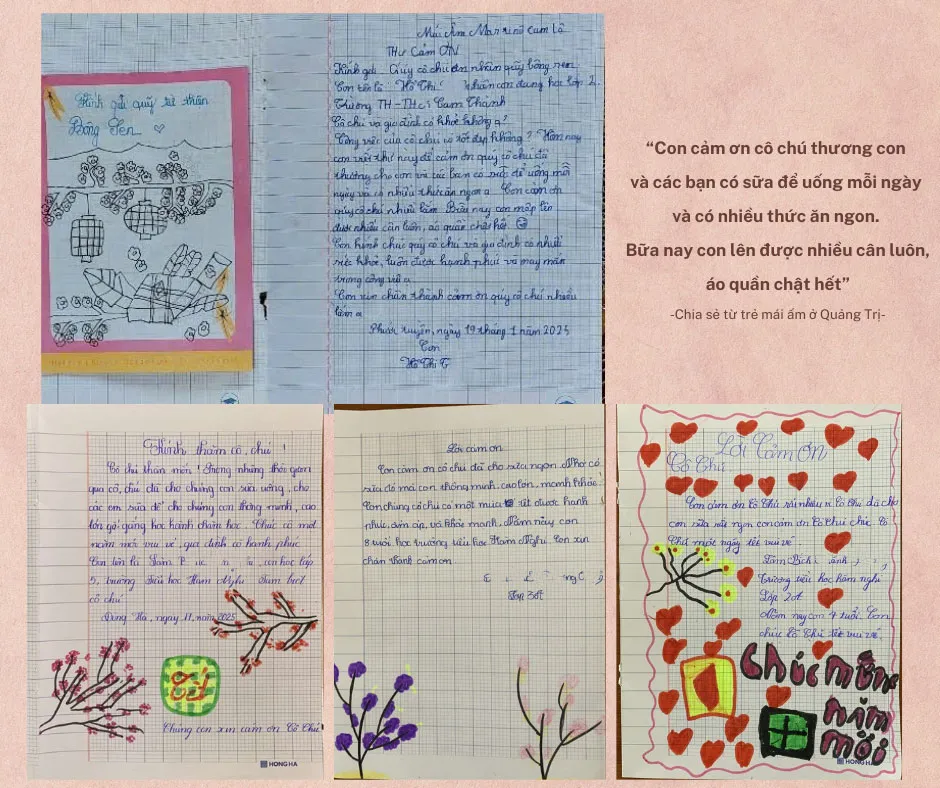 Kính gửi quỹ từ thân
Bông Sen
Mái Ấm Mar Cam Lộ
Thư Cảm Ơn
Kính gửi: Quý cô chú ân nhân quỹ bông sen
Con tên là: Hồ Thị học lớp 2
Trường TH-THCS Cam Thành
Cô chú và gia đình có khỏe không ạ?
Công việc của cô chú có tốt đẹp không? Hôm nay
con viết thư này để cảm ơn quý cô chú đã
thương cho con và các bạn có sữa để uống mỗi
ngày và có nhiều thức ăn ngon ạ. Con cảm ơn
quý cô chú nhiều lắm. Bữa nay con mập lên
được nhiều cân luôn, áo quần chật hết
Con kính chúc quý cô chú và gia đình có nhiều
sức khỏe, luôn được hạnh phúc và may mắn
trong công việc ạ
Con xin chân thành cảm ơn quý cô chú nhiều
lắm ạ
Phước tuyền, ngày 19 tháng 1 năm 2025
Con
Hồ Thị T
“Con cảm ơn cô chú thương con
và các bạn có sữa để uống mỗi ngày
và có nhiều thức ăn ngon.
Bữa nay con lên được nhiều cân luôn,
áo quần chật hết”
-Chia sẻ từ trẻ mái ấm ở Quảng Trị-
Kính thăm cô, chú!
Cô chú thân mến! Trong những thời gian
qua cô, chú đã cho chúng con sữa uống, cho
các em sữa để cho chúng con thông minh, cao
lớn gắng học hành chăm học. Chúc cô một
năm mới vui vẻ, gia đình cô hạnh phúc
Con tên là con học lớp
5, trường Tiểu học Hàm Nghi. Tạm biệt
cô chú
Đông Hà, ngày 11, năm 2025
Tết
Chúng con xin cảm ơn Cô Chú
HONG HA
Lời cảm ơn
Con cảm ơn cô chú đã cho sữa ngon. Nhờ có
sữa đó mà con thông minh, cao lớn, mạnh khỏe!
Con chúng cô chú có một mùa tết được hạnh
phúc, ấm áp, và khỏe mạnh. Năm này con
8 tuổi học trường tiểu học Hàm Nghi. Con xin
chân thành cảm ơn.
Lời Cảm Ơn
Cô Chú
Con cảm ơn Cô Chú rất nhiều Cô Chú đã cho
con sữa rất ngon con cảm ơn Cô Chú chúc Cô
Chú một ngày tết vui vẻ.
Trường tiểu học hàm nghi
Lớp 2
Năm nay con tuổi. Con
chúc Cô Chú tết vui vẻ.
Chúc mừng
năm
mới
HONG HA